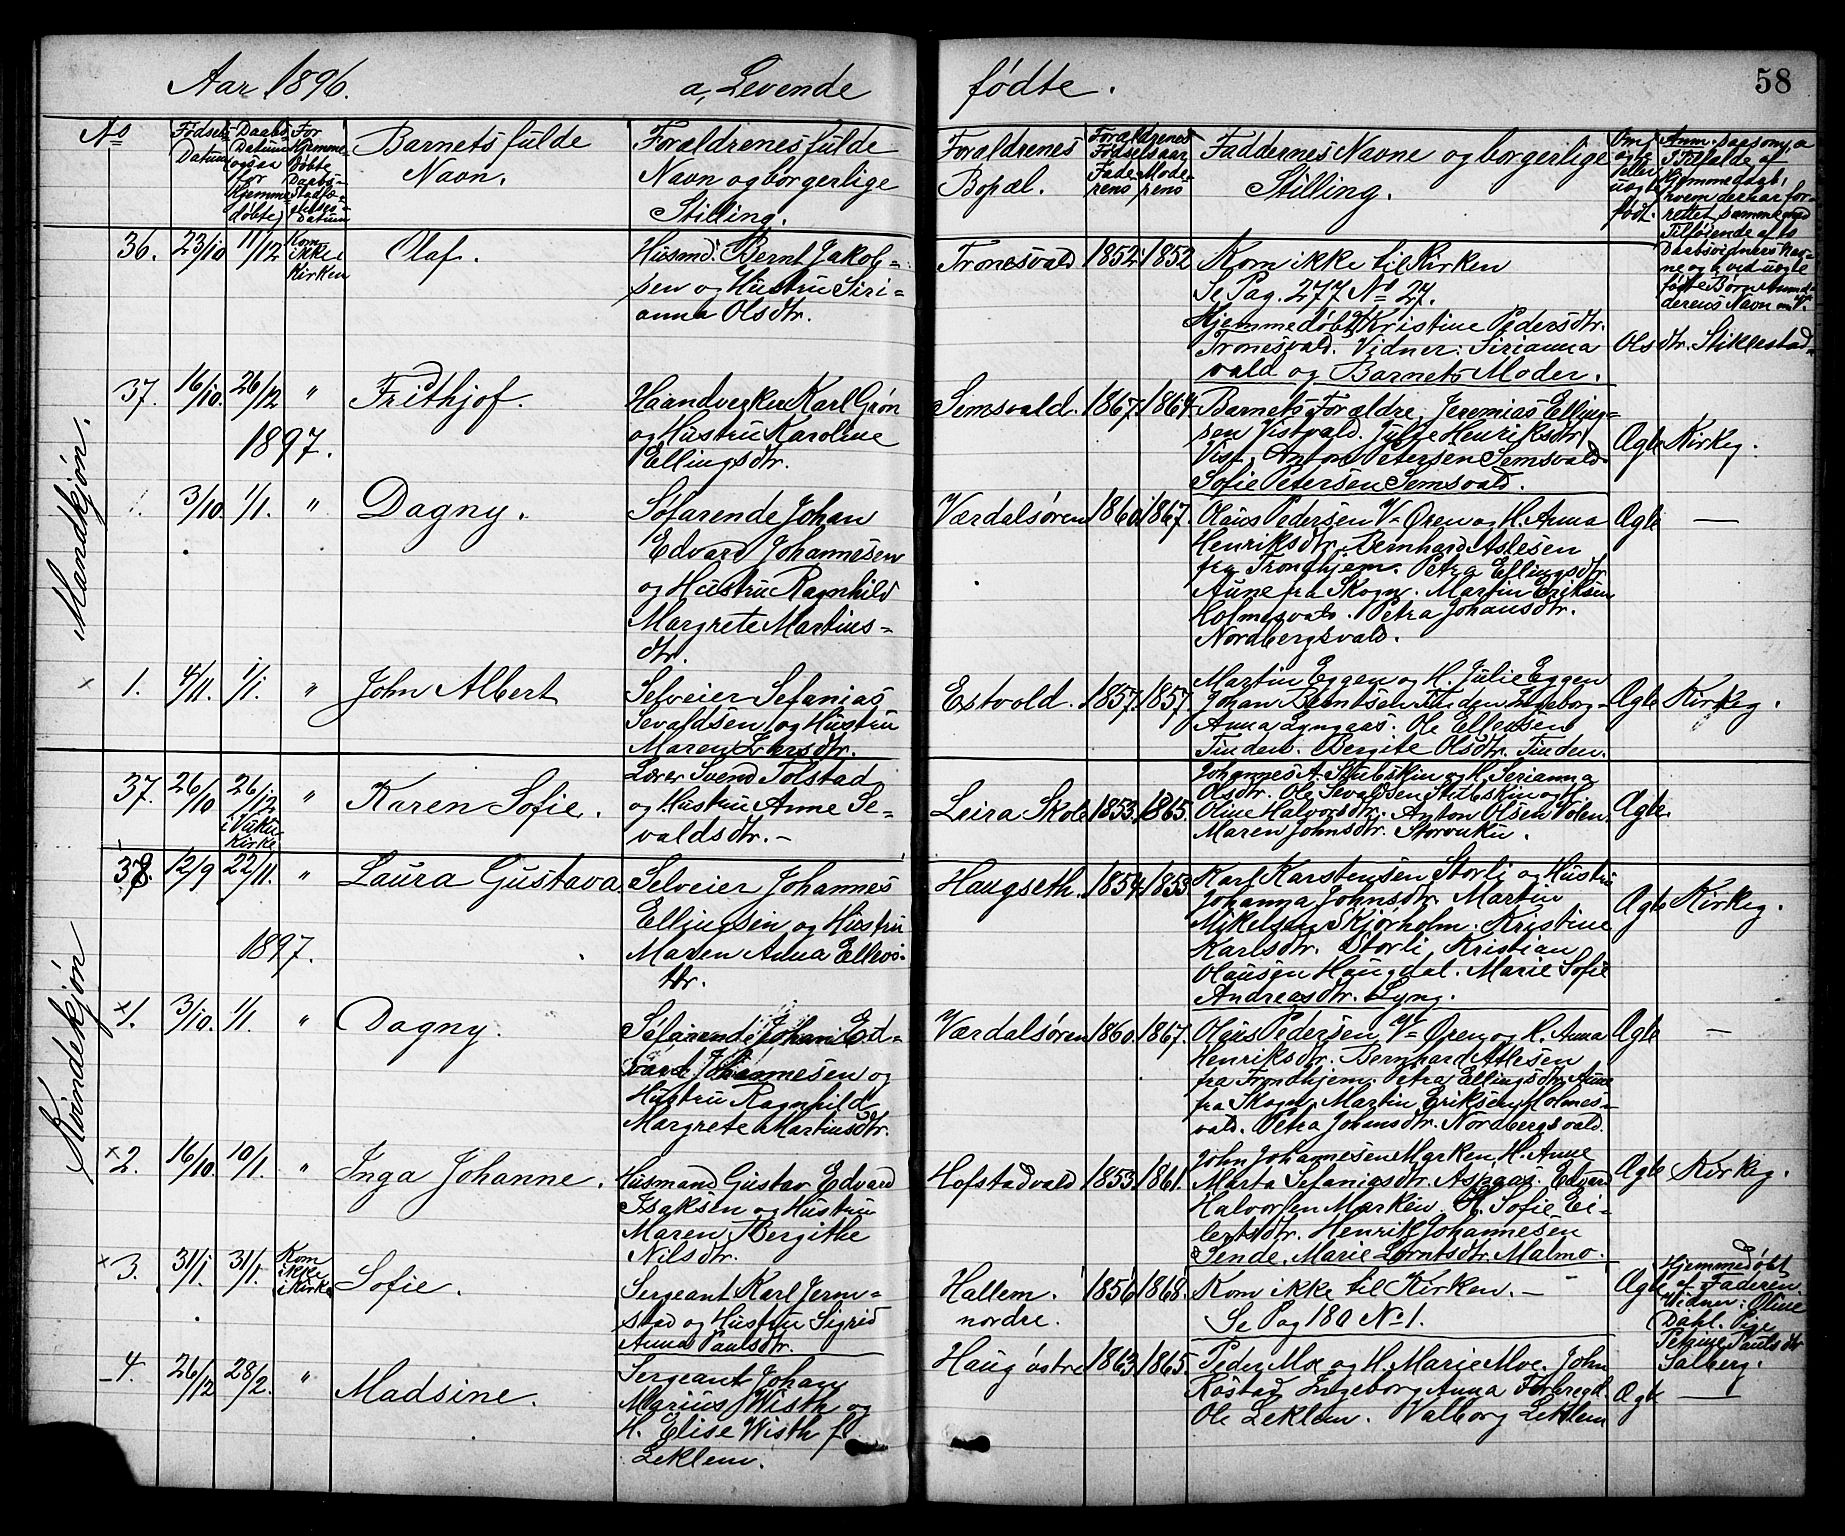 Aar 1896.
a, Levende
fødte.
58
No
Fødsels Datum
Daabs Datum ogsaa for Hjemmedøbte
For Hjemmedøbte Daabs Stadfæstelses Datum
Barnets fulde Navn.
Forældrenes fulde Navn og borgerlige Stilling.
Forældrenes Bopæl.
Forældrenes Fødselsaar Faderens Moderens
Faddernes Navne og borgerlige Stilling.
Om ægte eller uægte født.
Mandkjøn.
36. 23/10 11/12 Kom ikke i Kirken
Olaf.
Husmd. Bernt Jakob-
sen og Hustru Siri-
anna Olsdtr.
Tronesvald 1852. 1852
Kom ikke til Kirken
Se Pag. 277 No 27.
Hjemmedøbt Kristine Pedersdtr.
Tronesvald. Vidner: Sirianna Olsdtr. Stiklestad-
vald og Barnets Moder.
37. 16/10. 26/12 "
Frithjof.
Haandverker Karl Grøn
og Hustru Karoline
Ellingsdtr.
Semsvald. 1867. 1864.
Barnets Forældre, Jeremias Elling-
sen Vistvald. Julie Henriksdtr.
Vist, Anton Petersen Semsvald.
Sofie Petersen Semsvald.
Ægte Kirkeg.
1897.
1. 3/10. 1/1. "
Dagny.
Søfarende Johan
Edvard Johannesen
og Hustru Ragnhild
Margrete Martins-
dtr.
Værdalsøren 1860. 1867.
Olaus Pedersen V= Øren og H. Anna
Henriksdtr. Bernhard Aslesen
fra Trondhjem. Petra Ellingsdtr.
Aune fra Skogn. Martin Eriksen
Holmesvald. Petra Johansdtr.
Nordbergsvald.
Ægte —
x 1. 4/11. 1/1. "
John Albert
Selveier Sefanias
Sevaldsen og Hustru
Maren Larsdtr.
Estvold. 1857. 1857
Martin Eggen og H. Julie Eggen
Johan Berntsen Tinden Ingeborg-
Anna Lyngaas. Ole Ellevsen
Tinden. Bergite Olsdtr. Tinden.
Ægte Kirkeg.
Kvindekjøn
37. 26/10 26/12 i Vuku Kirke "
Karen Sofie.
Lærer Svend Tolstad
og Hustru Anne Se-
valdsdtr. -
Leira Skole 1853. 1865.
Johannes A. Stubskin og H. Serianna
Olsdtr. Ole Sevaldsen Stubskin og H.
Oline Halvorsdtr. Anton Olsen Volen.
Maren Johnsdtr. Storvuku.
Ægte.
38. 12/9 22/11. "
Laura Gustava.
Selveier Johannes
Ellingsen og Hustru
Maren Anna Ellevs-
dtr.
Haugseth. 1854. 1853.
Karl Karstensen Storli og Hustru
Johanna Johnsdtr. Martin
Mikelsen Skjørholm. Kristine
Karlsdtr. Storli Kristian
Olausen Haugdal. Marie Sofie
Andreasdtr. Lyng.
Ægte Kirkeg.
1897.
x1. 3/10. 1/1. "
Dagny.
Søfarende Johan Ed-
vard Johannesen og
Hustru Ragnhild
Margrete Martinsdtr.
Værdalsøren 1860. 1867.
Olaus Pedersen V= Øren og H. Anna
Henriksdtr. Bernhard Atlesen
fra Trondhjem. Petra Ellingsdtr. Aune
fra Skogn. Martin Eriksen Holmes-
vald. Petra Johansdtr. Nordbergsvald.
Ægte —
x2. 16/10. 10/1. "
Inga Johanne.
Husmand Gustav Edvard
Isaksen og Hustru
Maren Bergithe
Nilsdtr.
Hofstadvald 1853. 1861.
John Johannesen Marken H. Anne
Marta Sefaniasdtr. Aspaas. Edvard
Halvorsen Marken. H. Sofie Ei-
lertsdtr. Henrik Johannesen
Sende. Marie Lorntsdtr. Malmo.
Ægte Kirkeg.
x3. 31/1. 31/1. Kom ikke i Kirke
Sofie.
Sergeant Karl Jerm-
stad og Hustru Sigrid
Anna Paulsdtr.
Hallem.
nordre.
1856 1868.
Kom ikke til Kirken. -
Se Pag 180 No 1.
Ægte
Hjemmedøbt
af Faderen.
Vidner: Oline
Dahl. Pige
Petrine Paulsdtr
Salberg.
4. 26/12 28/2. "
Madsine.
Sergeant Johan
Marius Wisth og
H. Elise Wisth f.
Leklem.
Haug østre 1863. 1865.
Peder Moe og H. Marie Moe. John
Rostad Ingeborg Anna Forbregd.
Ole Leklem. Valborg Leklem
Ægte —